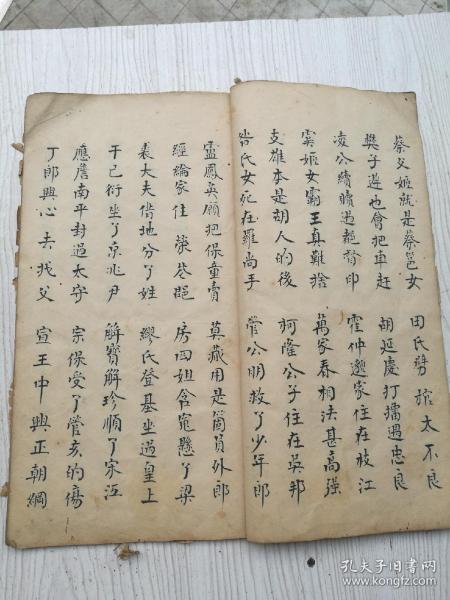 蔡文姬就是蔡邕女 田氏劈棺太不良
樊子遊也會把車赶 胡延慶打擂遇忠良
凌公續過印 霍仲邈家住在枝江
虞姬女霸王真難捨 萬家春相法甚高強
支雄本是胡人的後 柯隆公子住在吳邦
昝氏女死在羅尚手 管公明救了少年郎
盧鳳英願把保童賣 莫藏用是箇員外郎
經綸家住巷 房四姐含冤懸了梁
裘大夫借地分了姓 繆氏登基坐過皇上
干已衍坐了京兆尹 解寶解珍順了宋江
應詹南平封過太守 宗保受了管亥的傷
丁郎興心去找父 宣王中興正朝綱
孔夫子旧书网
www.kongfz.com